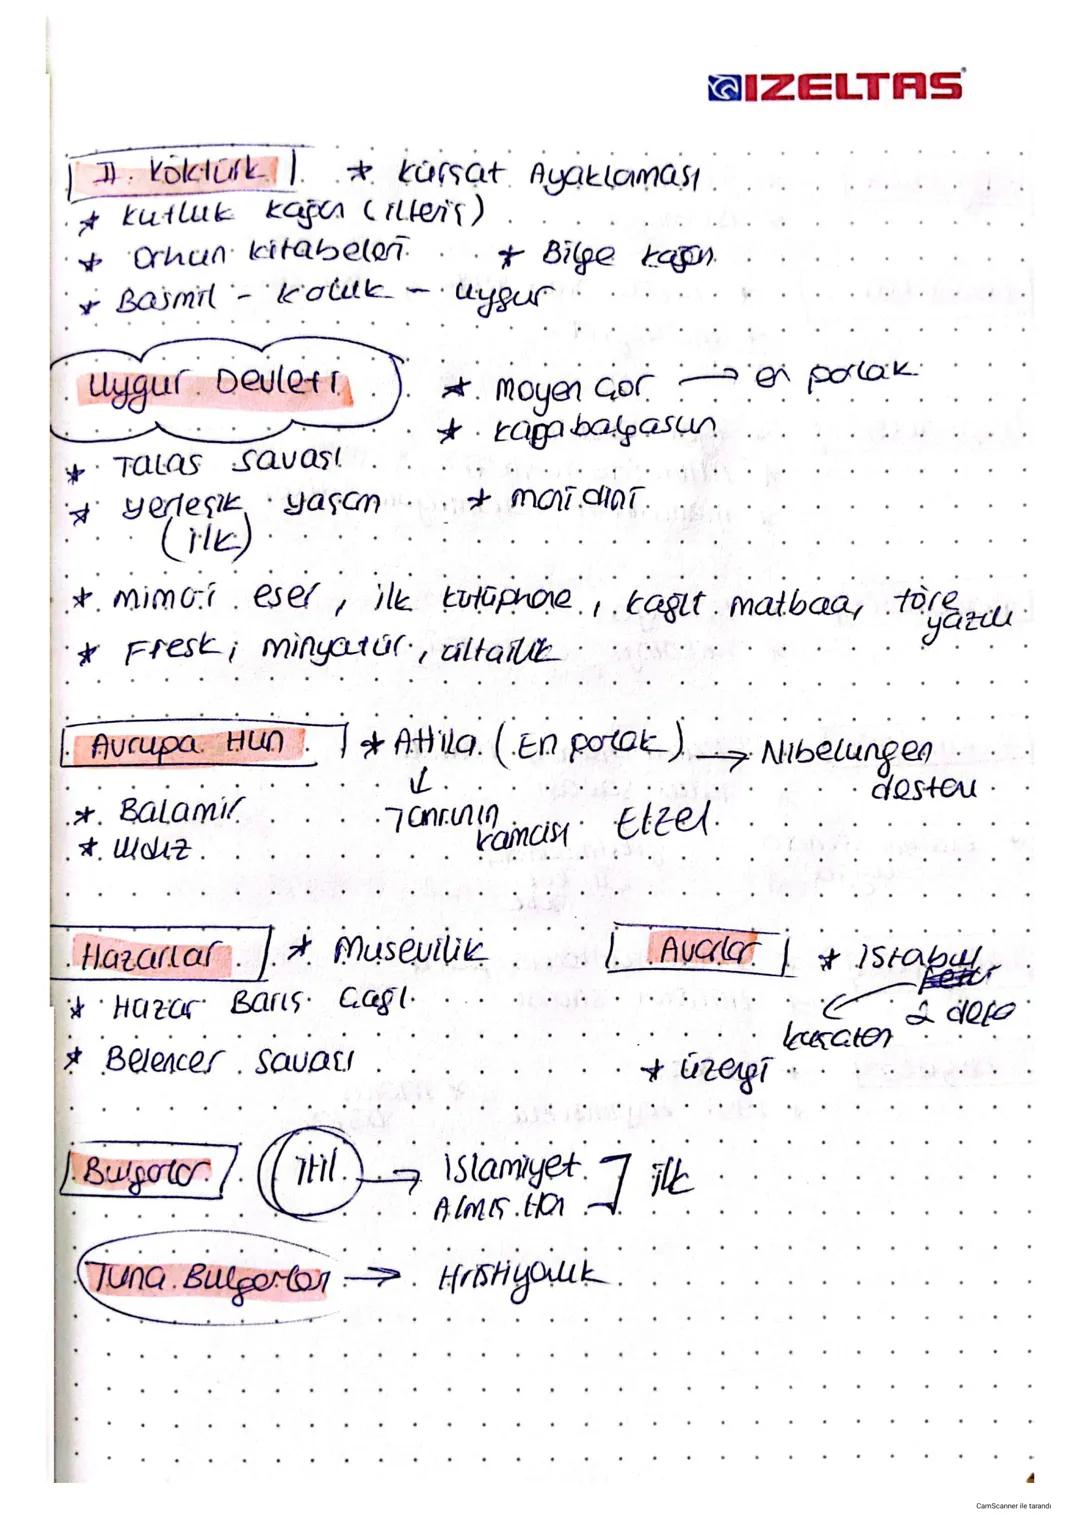 IZELTAS
II. Köktürk * Kürşat Ayaklaması
* Kutluk Kağan (ilteriş)
* Orhun kitabeleri * Bilge Kağan
* Basmil - Koluk - Uygur
Uygur Devleti * Moyen Çor → en parlak
* Kagabalgasun
* Talas Savaşı
* yerleşik yaşam * mani dini
(ilk)
* mimari eser, ilk kütüphane, kağıt matbaa, töre yazılı
* Fresk, minyatür, ciltcilik
Avrupa Hun * Attila (En parlak) → Nibelungen destanı
* Balamir ↓ Tanrının kamçısı Etzel
* Uldız
Hazarlar * Musevilik Avarlar * istabul
* Hazar Barış Çağı kuşatan 2 defa
* Belencer savaşı * üzengi
Bulgarlar itil → islamiyet ilk
Almış Han
Tuna Bulgarları → Hristiyanlık
CamScanner ile tarandı